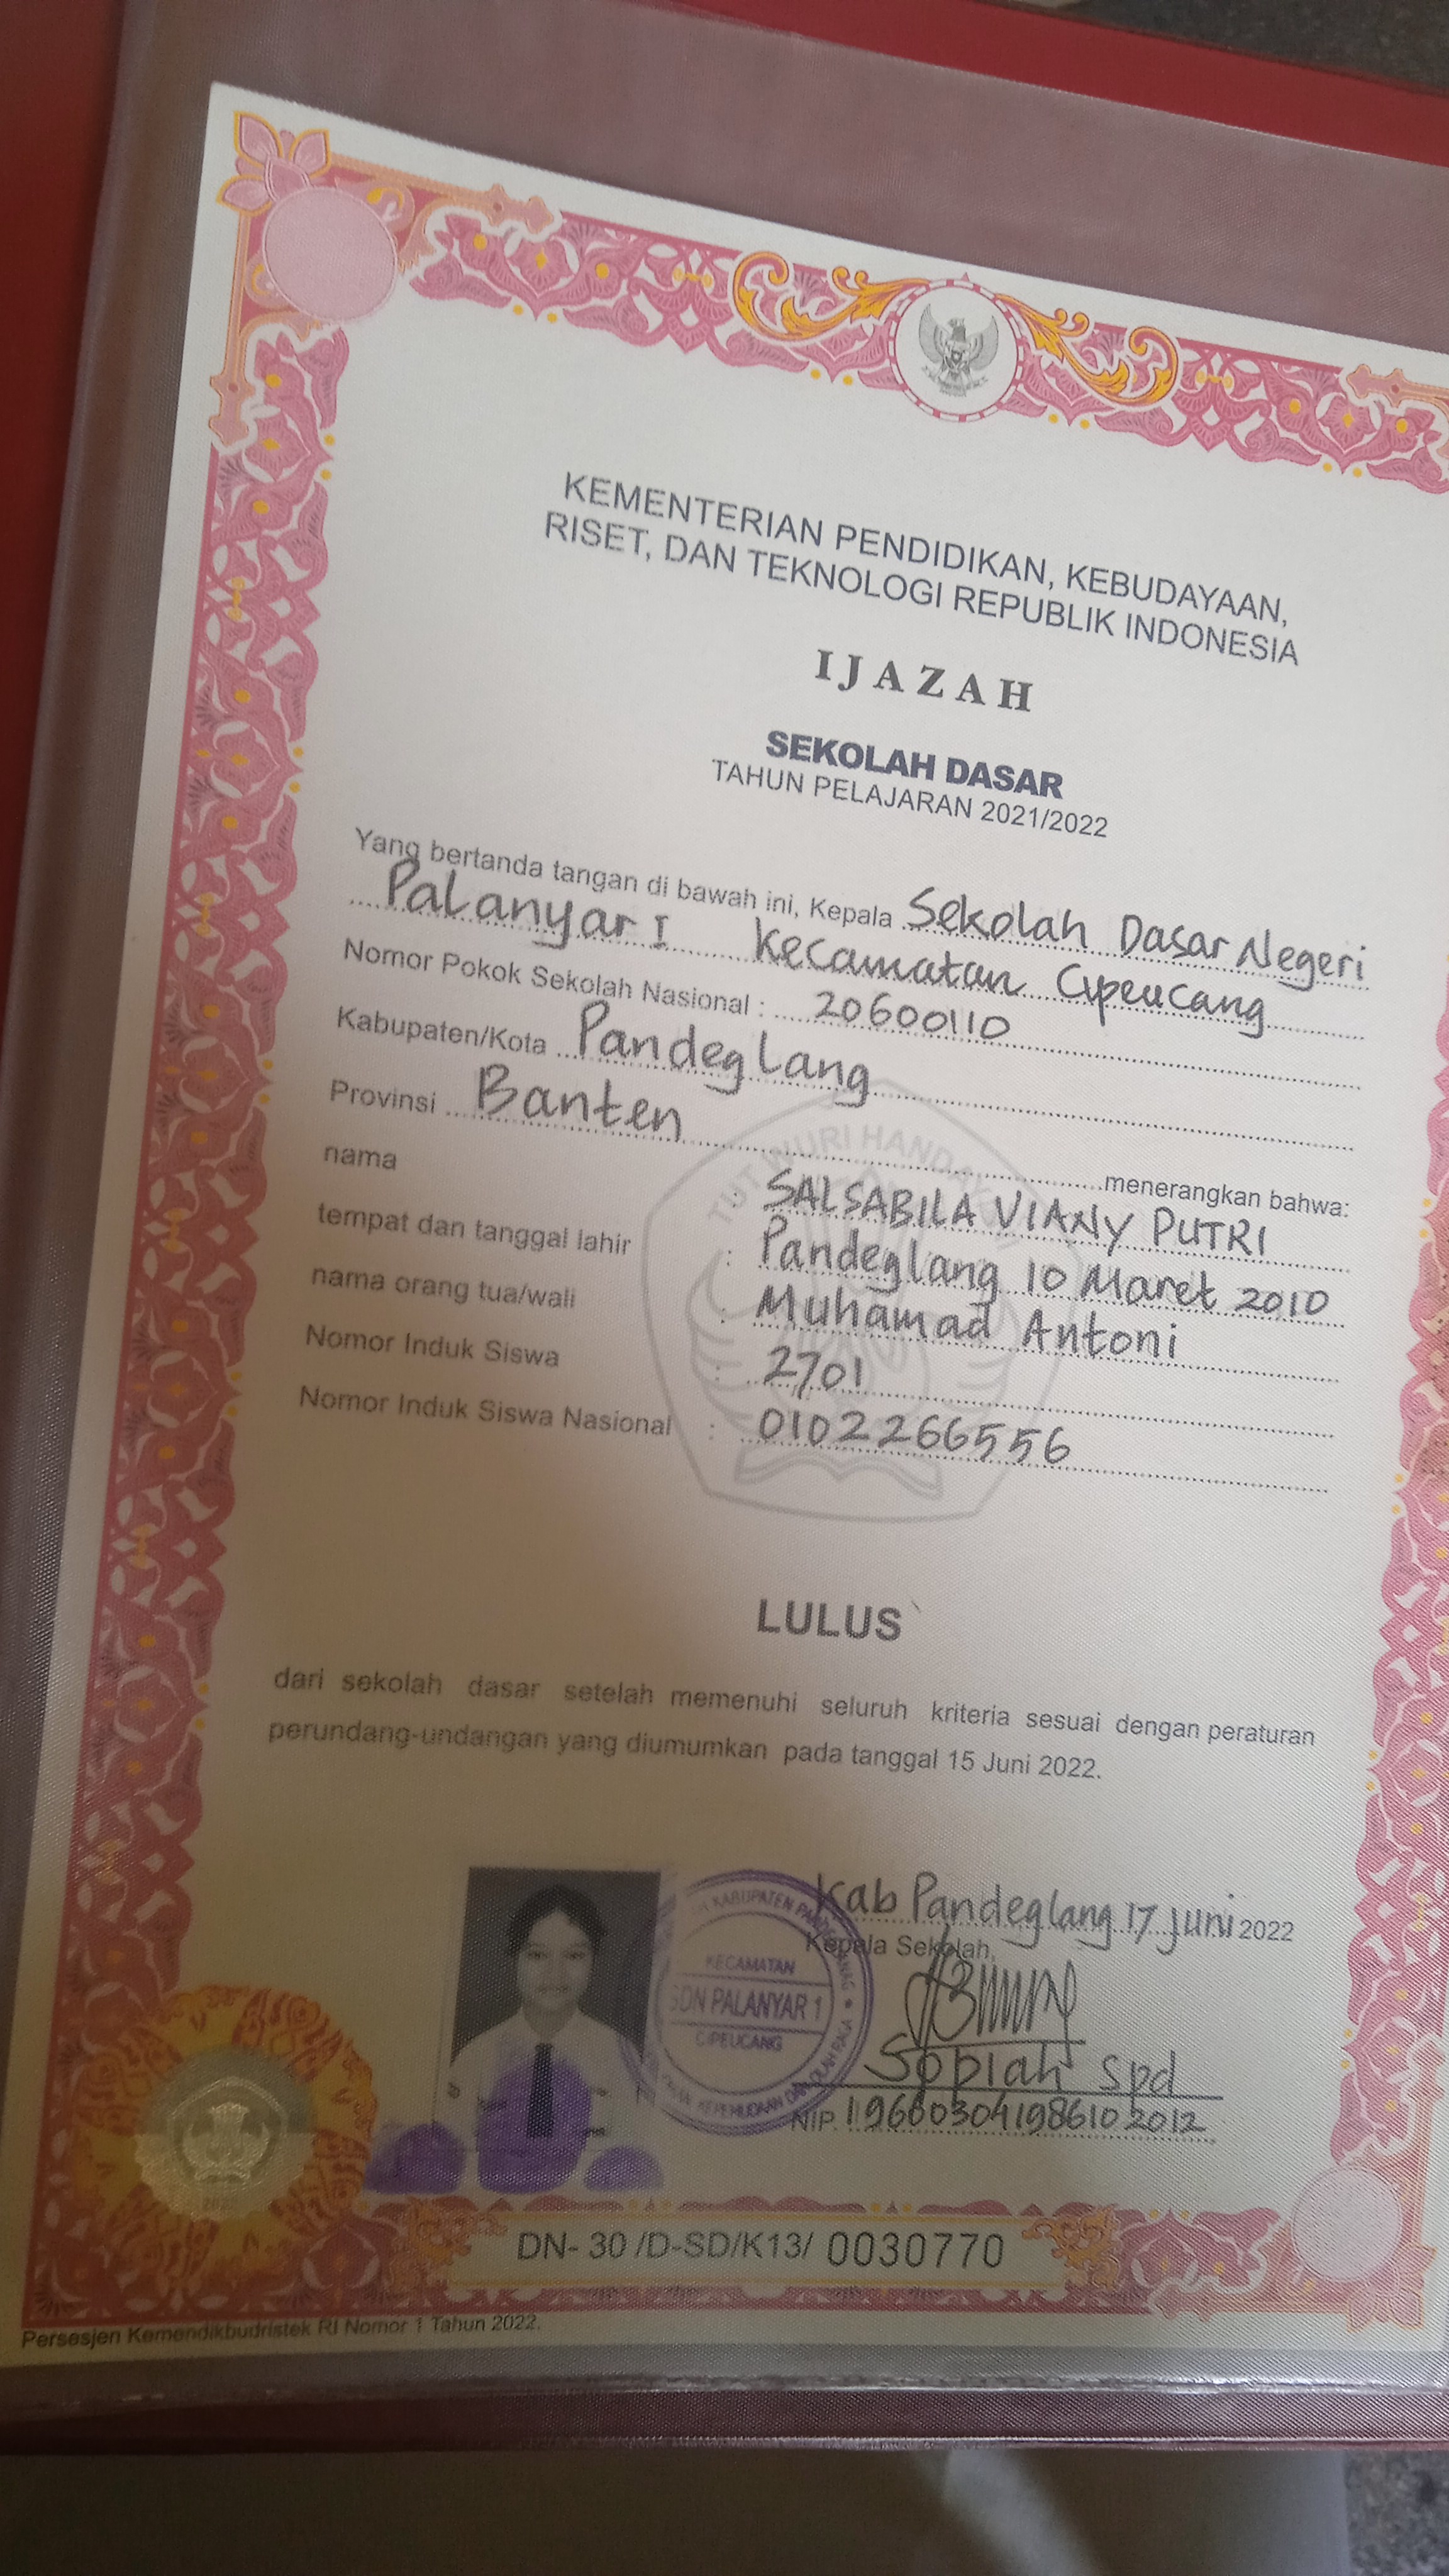 KEMENTERIAN PENDIDIKAN, KEBUDAYAAN,
RISET, DAN TEKNOLOGI REPUBLIK INDONESIA
IJAZAH
SEKOLAH DASAR
TAHUN PELAJARAN 2021/2022
Yang bertanda tangan di bawah ini, Kepala Sekolah Dasar Negeri
Palanyar I Kecamatan Cipeucang
Nomor Pokok Sekolah Nasional : 20600110
Kabupaten/Kota Pandeglang
Provinsi Banten menerangkan bahwa:
nama : SALSABILA VIANY PUTRI
tempat dan tanggal lahir : Pandeglang 10 Maret 2010
nama orang tua/wali : Muhamad Antoni
Nomor Induk Siswa : 2701
Nomor Induk Siswa Nasional : 0102266556
TUT WURI HANDAYANI
LULUS
dari sekolah dasar setelah memenuhi seluruh kriteria sesuai dengan peraturan
perundang-undangan yang diumumkan pada tanggal 15 Juni 2022.
Kab Pandeglang 17 Juni 2022
Kepala Sekolah,
KABUPATEN
KECAMATAN
SDN PALANYAR 1
CIPEUCANG
Sopiah Spd
NIP. 196003041986102012
DN- 30 /D-SD/K13/ 0030770
Persesjen Kemendikbudristek RI Nomor 1 Tahun 2022.